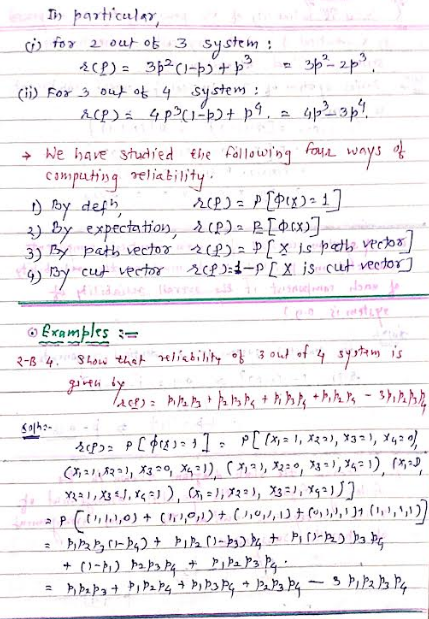 In particular,
(i) for 2 out of 3 system :
r(p) = 3p²(1-p) + p³ = 3p² - 2p³.
(ii) For 3 out of 4 system :
r(p) = 4p³(1-p) + p⁴. = 4p³ - 3p⁴.
→ We have studied the following four ways of
computing reliability.
1) By defn, r(p) = P[Φ(x)=1]
2) By expectation, r(p) = E[Φ(x)]
3) By path vector r(p) = P[X is path vector]
4) By cut vector r(p) = 1-P[X is cut vector]
⊙ Examples :=
2-B 4. Show that reliability of 3 out of 4 system is
given by
r(p) = p₁p₂p₃ + p₂p₃p₄ + p₁p₃p₄ + p₁p₂p₄ - 3p₁p₂p₃p₄
Soln:-
r(p) = P[Φ(x)=1] = P[(x₁=1, x₂=1, x₃=1, x₄=0),
(x₁=1, x₂=1, x₃=0, x₄=1), (x₁=1, x₂=0, x₃=1, x₄=1), (x₁=0,
x₂=1, x₃=1, x₄=1), (x₁=1, x₂=1, x₃=1, x₄=1)]
= P[(1,1,1,0) + (1,1,0,1) + (1,0,1,1) + (0,1,1,1) + (1,1,1,1)]
= p₁p₂p₃(1-p₄) + p₁p₂(1-p₃)p₄ + p₁(1-p₂)p₃p₄
+ (1-p₁) p₂p₃p₄ + p₁p₂p₃p₄.
= p₁p₂p₃ + p₁p₂p₄ + p₁p₃p₄ + p₂p₃p₄ - 3 p₁p₂p₃p₄